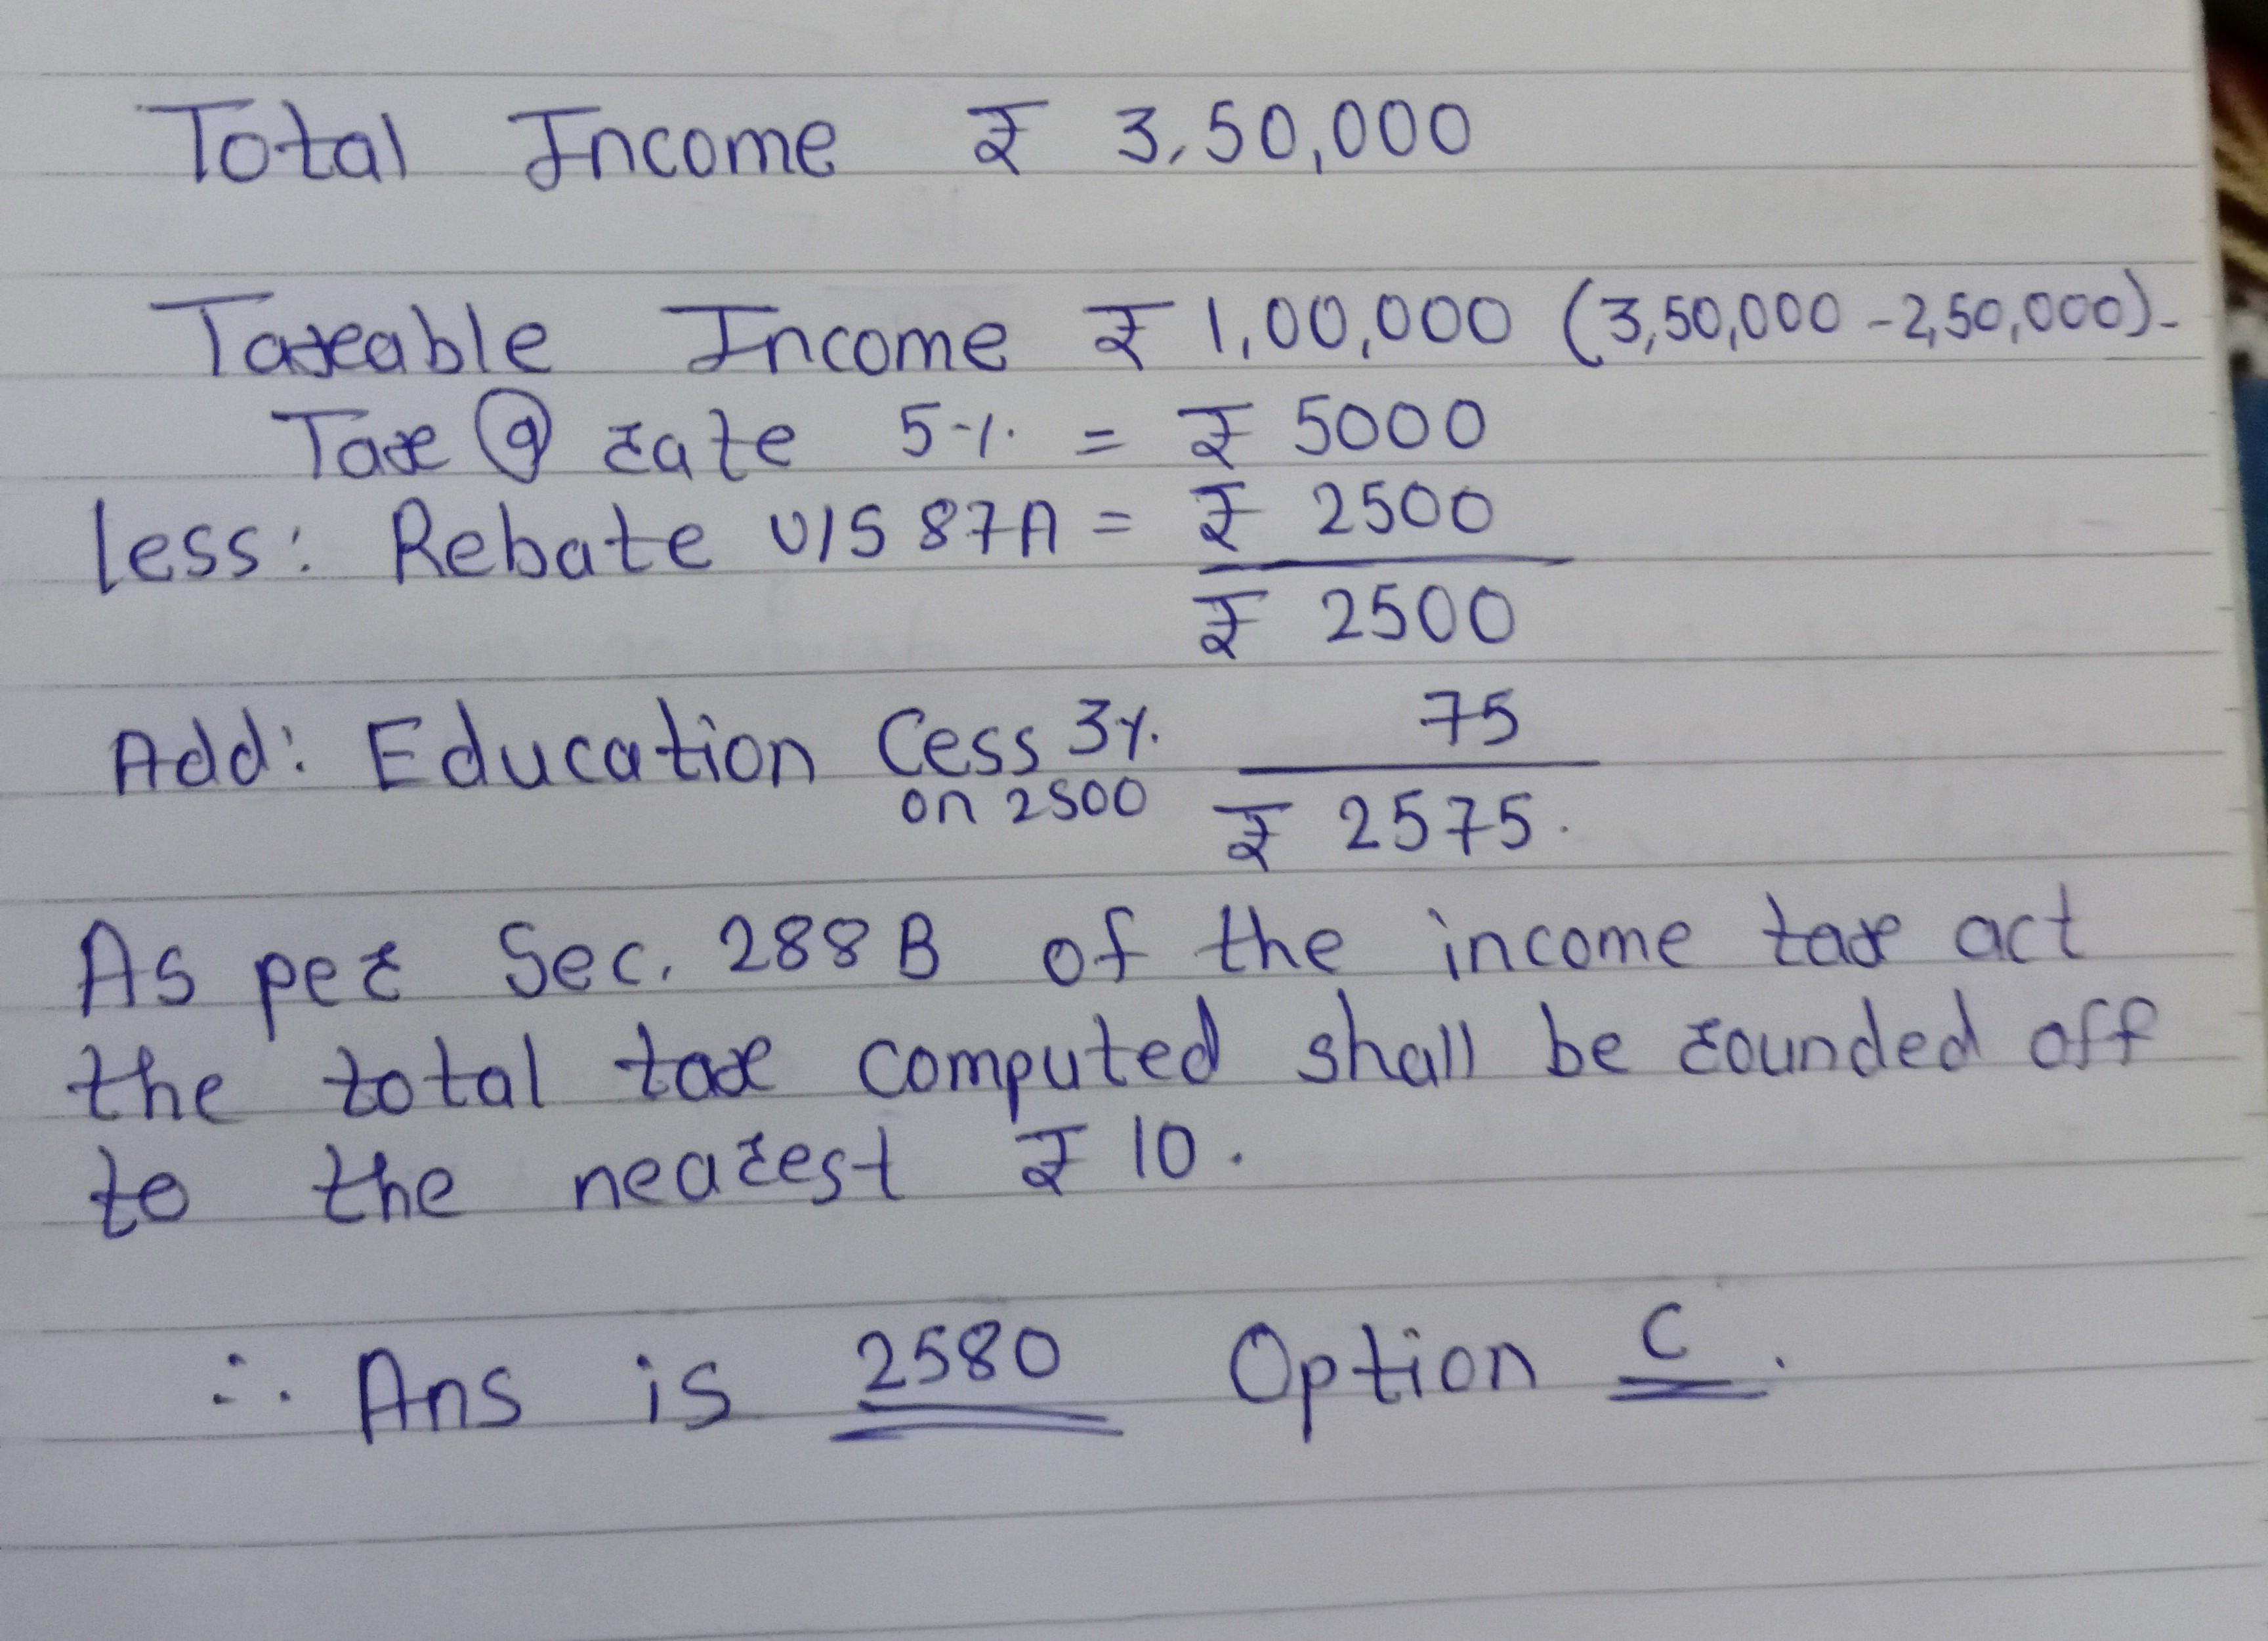 Total Income ₹ 3,50,000
Taxeable Income ₹ 1,00,000 (3,50,000 - 2,50,000).
Tax @ rate 5% = ₹ 5000
less: Rebate U/S 87A = ₹ 2500
₹ 2500
Add: Education Cess 3% 75
on 2500 ₹ 2575.
As per Sec. 288B of the income tax act
the total tax computed shall be rounded off
to the nearest ₹ 10.
∴ Ans is 2580 Option C.